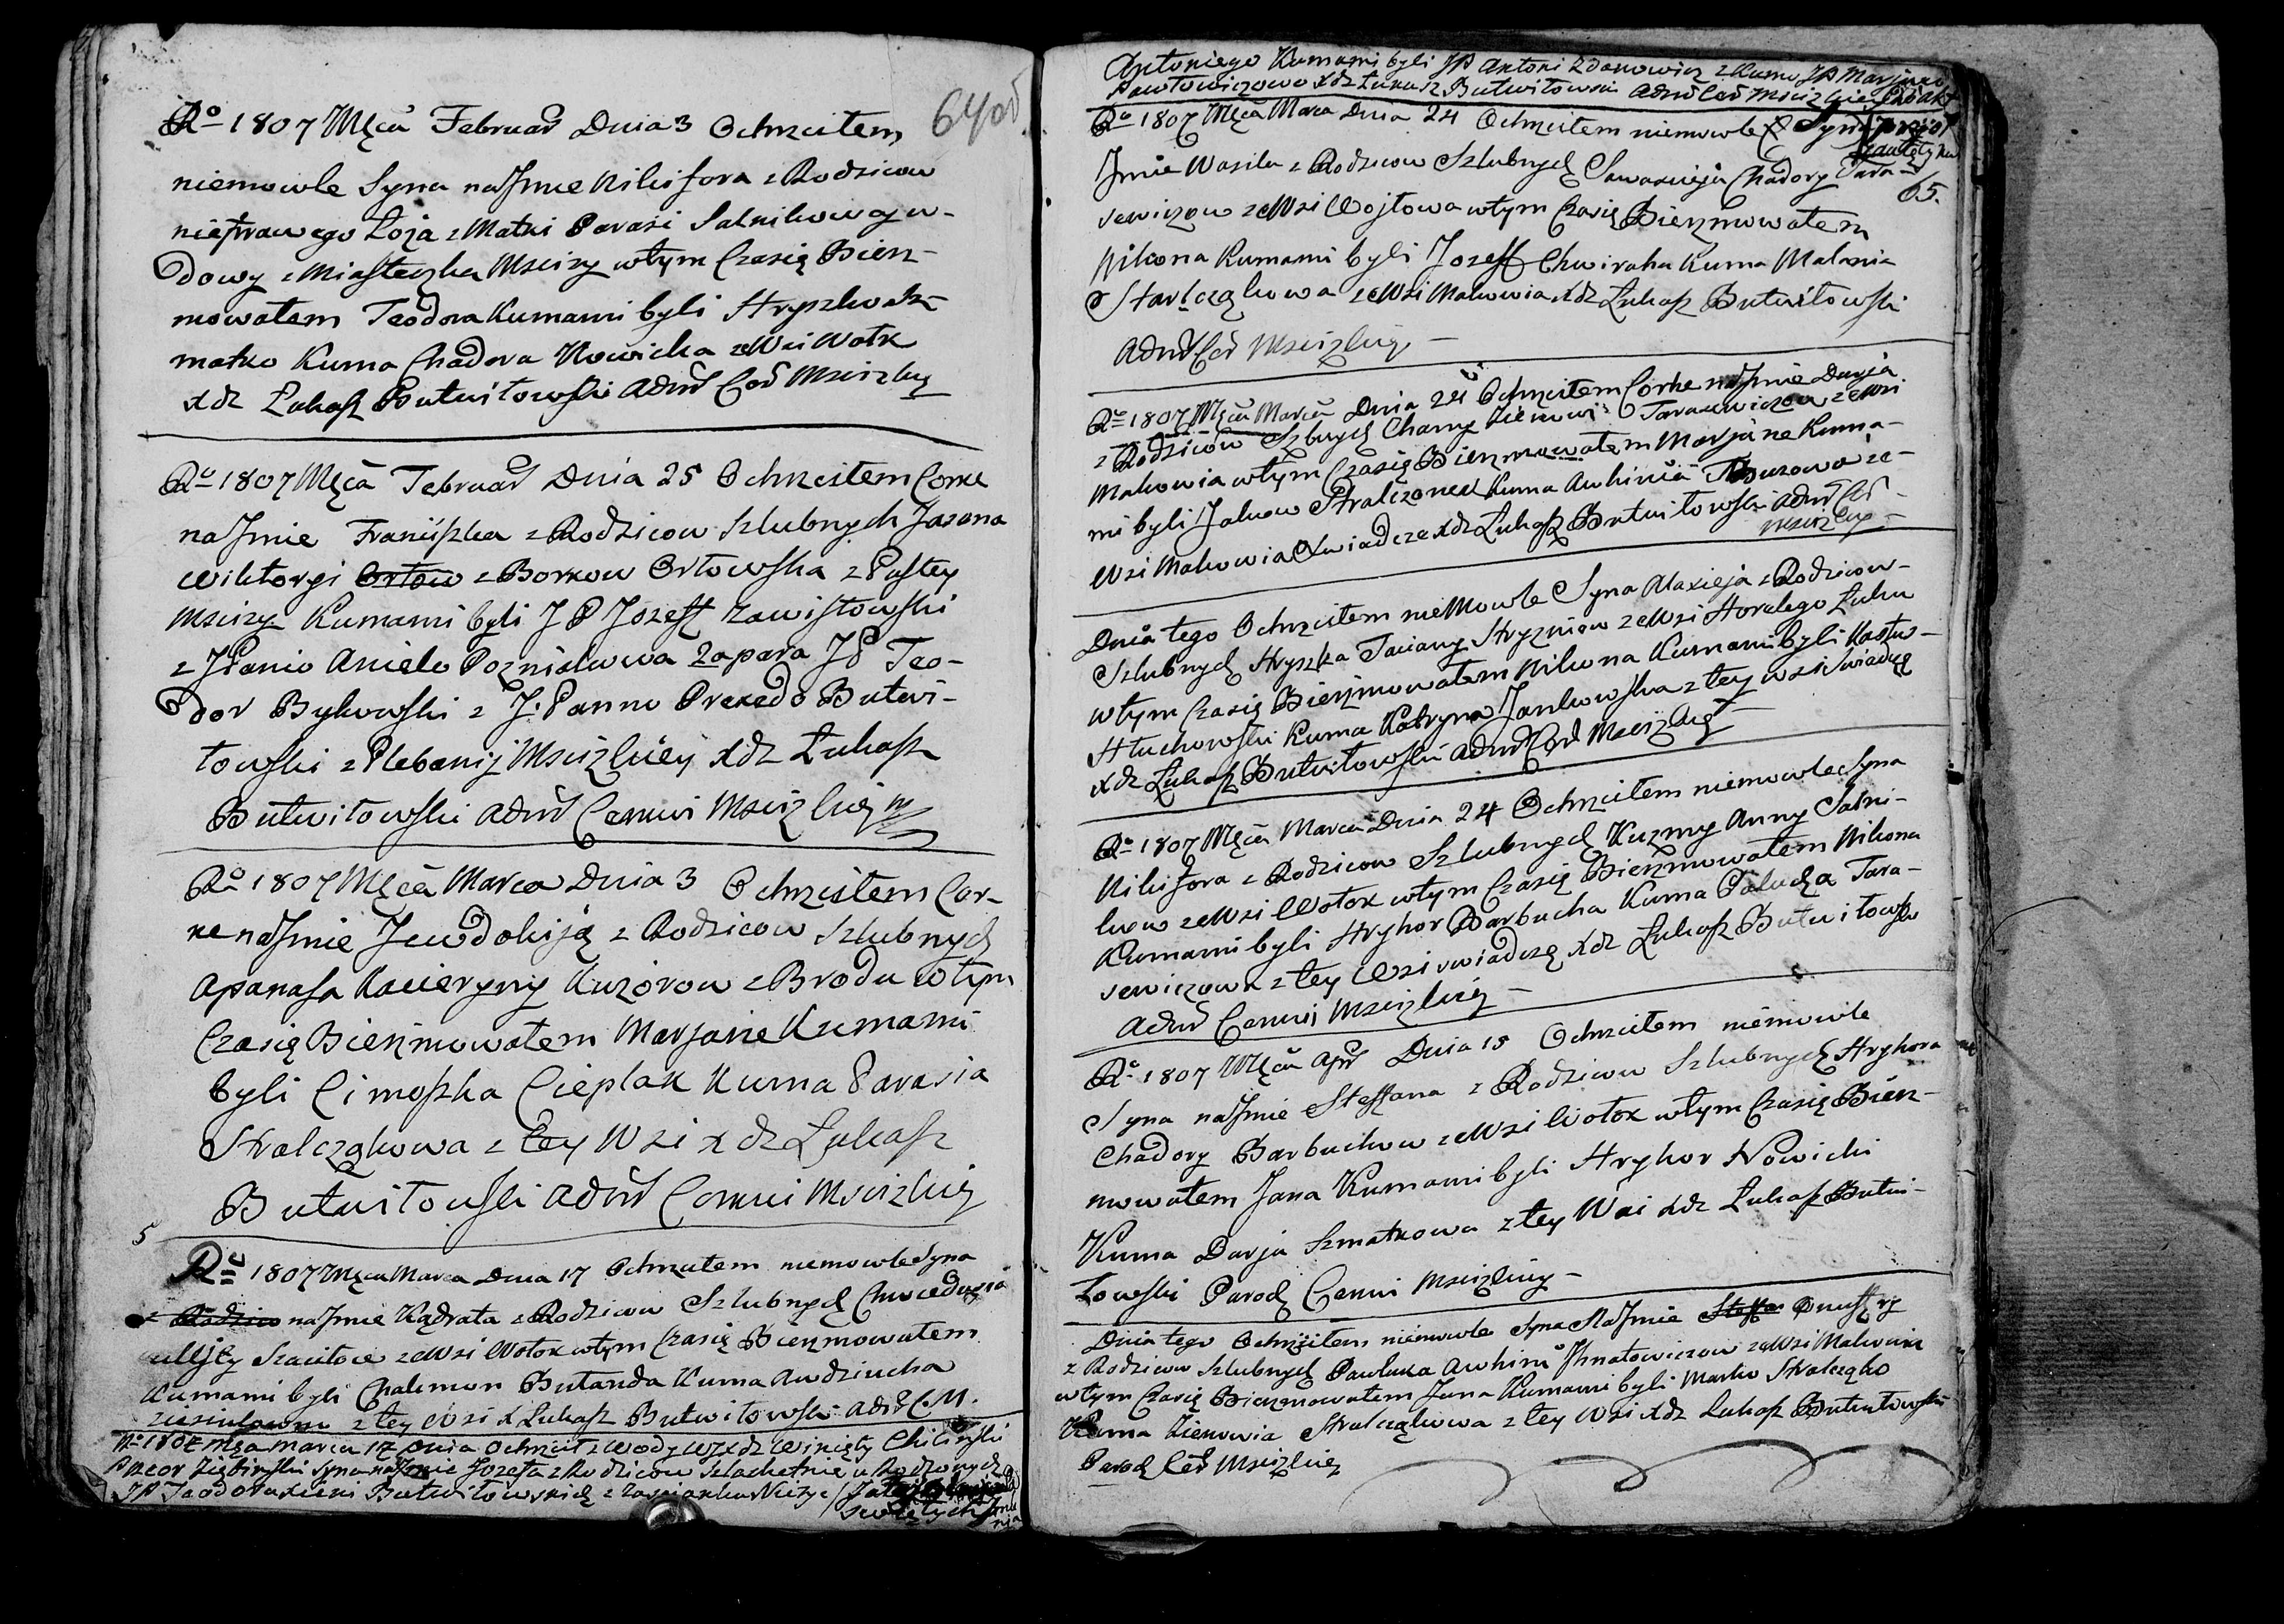 64 об.
Ro 1807 Mca Februar Dnia 3 Ochrzciłem
niemowle Syna na Jmie Nikifora z Rodzicow
nieprawego Łoża z Matki Parasi Salnikowey w-
dowy z Miasteczka Mscizy w tym Czasię Bierz-
mowałem Teodora Kumami byli Hryszko
matko Kuma Chadora Nowicka ze Wsi Wołk
xdz Łukasz Butwiłowski Admr Cer Msciżkiey
Ro 1807 Mca Februar Dnia 25 Ochrzciłem Corke
na Jmie Franciszka z Rodzicow Szlubnych Jazona
Wiktoryi Orłow z Borkow Orłowska z Pustey
Mscizy Kumami byli J P Jozeff Zawistowski
z J Panio Anielo Pozniakowa 2a para J P Teo-
dor Bykowski z J. Panno Praxedo Butwi-
łowski z Plebanij Msciżkiey xdz Łukasz
Butwiłowski Admr Cerkwi Msciżkiey
Ro 1807 Mca Marca Dnia 3 Ochrzciłem Cor-
ke na Jmie Jewdokiją z Rodzicow Szlubnych
Apanasa Kacieryny Kuzorow z Brodu w tym
Czasię Bierzmowałem Marjane Kumami
byli Cimoszka Cieplak Kuma Parasia
Stralcząkowa z tey Wsi xdz Łukasz
Butwiłowski Admr Cerkwi Msciżkiey
5
Ro 1807 Mca Marca Dnia 17 Ochrzciłem niemowle Syna
z Rodzicow na Jmie Kądrata z Rodzicow Szlubnych Chwiedosia
Ullity ze Wsi Wołok w tym Czasię Bierzmowałem
Kumami byli Chalimon Butanda Kuma Audziucha
z tey Wsi x Łukasz Butwiłowski Admr C. M.
Ro 1807 Mca Marca 17 Dnia Ochrzcił z Wody WJX dz Wincęty Chilinski
Przeor Ziębinski Syna na Jmie Jozefa z Rodzicow Szlachetnie Urodzonych
JP Teodora Butwiłowskich z Zascianku Niżyc
Swiętych
Antoniego Kumami byli JP Antoni Zdanowicz z Kumo JP Marjano
Pawłowiczowo xdz Łukasz Butwiłowski Admr Cer Msciżkiey
Ro 1807 Mca Marca Dnia 24 Ochrzciłem niemowle Syna
65.
Jmie Wasila z Rodzicow Szlubnych Sawasieja Chadory Tara-
sewiczow ze Wsi Wojtowa w tym Czasię Bierzmowałem
Nikona Kumami byli Jozeff Chwiraha Kuma Malania
Starcząkowa ze Wsi Makowia xdz Łukasz Butwiłowski
Admr Cer Msciżkiey
Ro 1807 Mca Marca Dnia 24 Ochrzciłem Corke na Jmie Darja
z Rodzicow Szlubnych Chamy Zienowi Tarasewiczow ze Wsi
Makowia w tym Czasię Bierzmowałem Marjane Kuma-
mi byli Jakow Stralczonek Kuma Auhinia ze-
Wsi Makowia Swiadcze xdz Łukasz Butwiłowski Admr Cer
Msciżkiey
Dnia tego Ochrzciłem niemowle Syna Alaxieja z Rodzicow
Szlubnych Hryszka Taciany Hryzniow ze Wsi Horelego Łuhu
w tym Czasię Bierzmowałem Nikona Kumami byli
Hłuchowski Kuma Katryna Jankowska z tey wsi Swiadczę
xdz Łukasz Butwiłowski Admr Cer Msciżkiey
Ro 1807 Mca Marca Dnia 24 Ochrzciłem niemowle Syna
Nikifora z Rodzicow Szlubnych Kuzmy Anny Salni-
kow ze Wsi Wołok w tym Czasię Bierzmowałem Nikona
Kumami byli Hryhor Barbucha Kuma Pałucha Tara-
sewiczowa z tey Wsi swiadczę xdz Łukasz Butwiłowski
Admr Cerkwi Msciżkiey
Ro 1807 Mca Apr Dnia 15 Ochrzciłem niemowle
Syna na Jmie Steffana z Rodzicow Szlubnych Hryhora
Chadory Barbuchow ze Wsi Wołok w tym Czasię Bierz-
mowałem Jana Kumami byli Hryhor Nowicki
Kuma Darja Szmatkowa z tey Wsi xdz Łukasz Butwi-
łowski Paroch Cerkwi Msciżkiey
Dnia tego Ochrzciłem niemowle Syna Na Jmie Steffa Onufry
z Rodzicow Szlubnych Pawluka Auhini Jhnatowiczow ze Wsi Makowia
w tym Czasię Bierzmowałem Jana Kumami byli Marko Stralcząko
Kuma Zienowia Stralcząkowa z tey Wsi xdz Łukasz Butwiłowski
Paroch Cer Msciżkiey